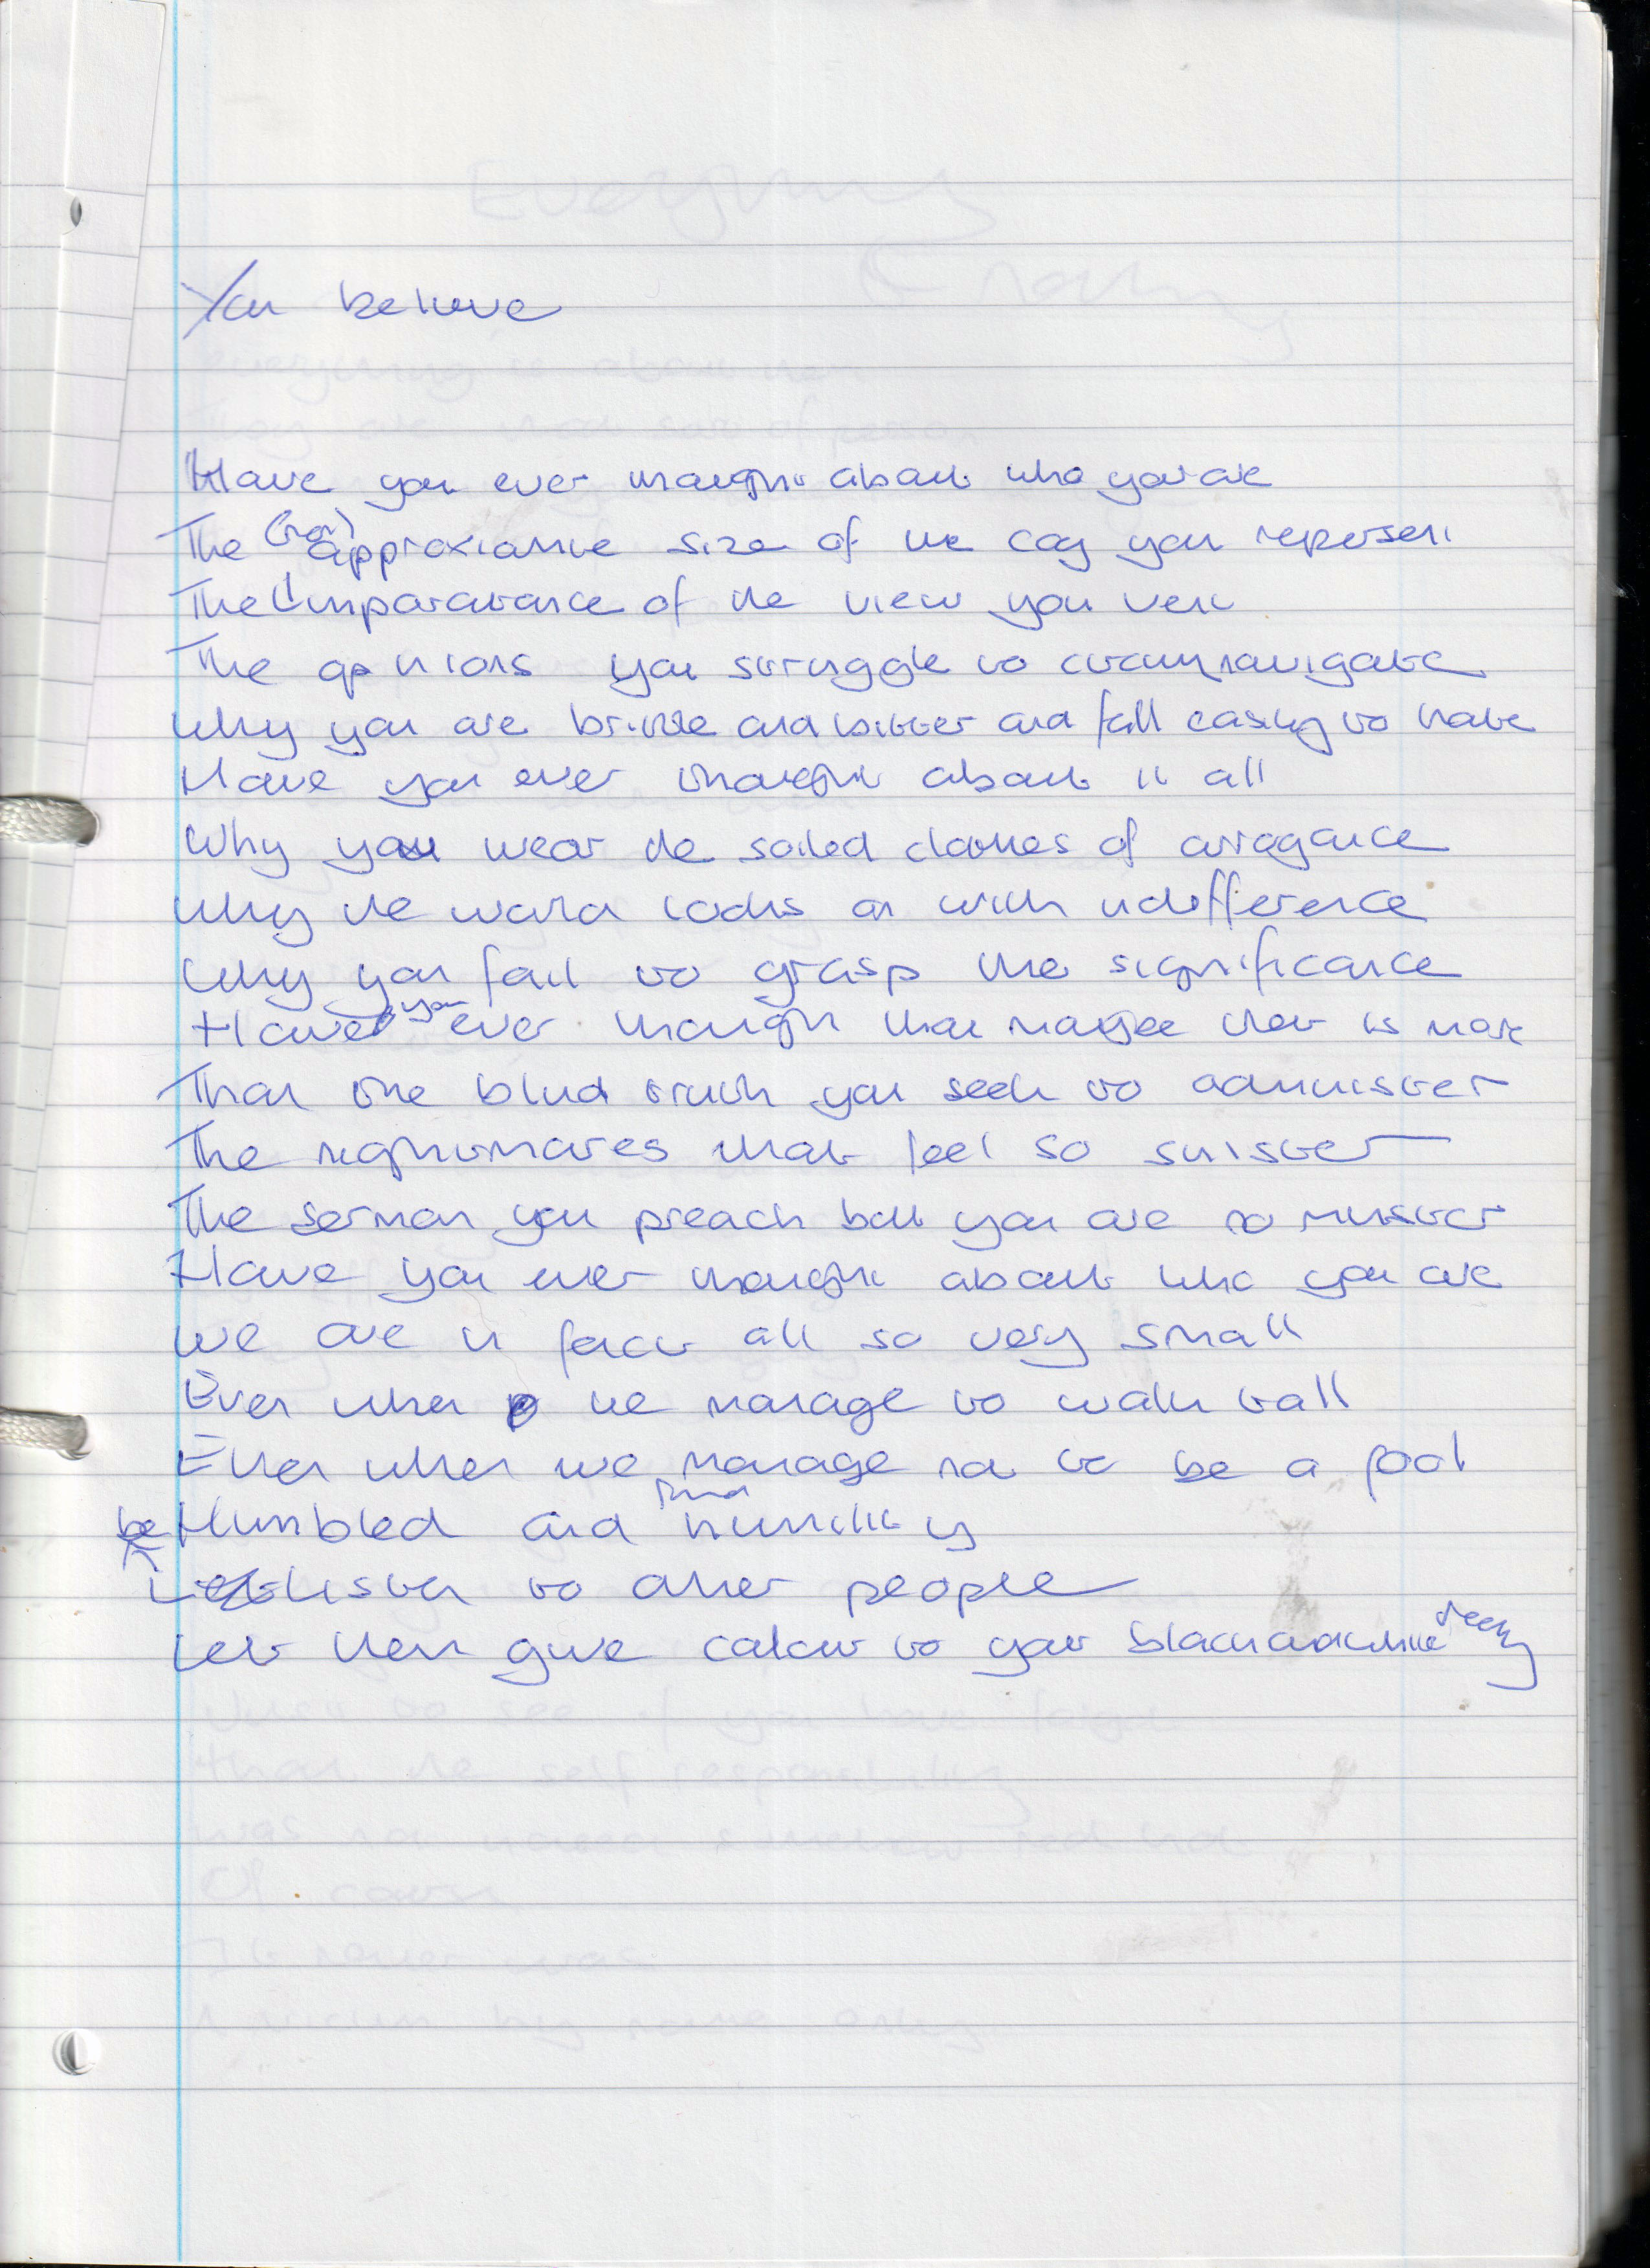 You believe
Have you ever thought about who you are
The (non) approxiamte size of the cog you represent
The importatance of the view you vent
The opinions you struggle to circumnavigate
Why you are brittle and bitter and fall easily to hate
Have you ever thought about it all
Why you wear the soiled clothes of arrogance
Why the world looks on with indifference
Why you fail to grasp the significance
Have you ever thought that maybe there is more
Than the blind truth you seek to administer
The nightmares that feel so sinister
The sermon you preach but you are no minister
Have you ever thought about who you are
We are in fact all so very small
Even when we manage to walk tall
Even when we manage not to be a fool
be Humbled and find humility
Listen to other people
Let them give colour to your black and white